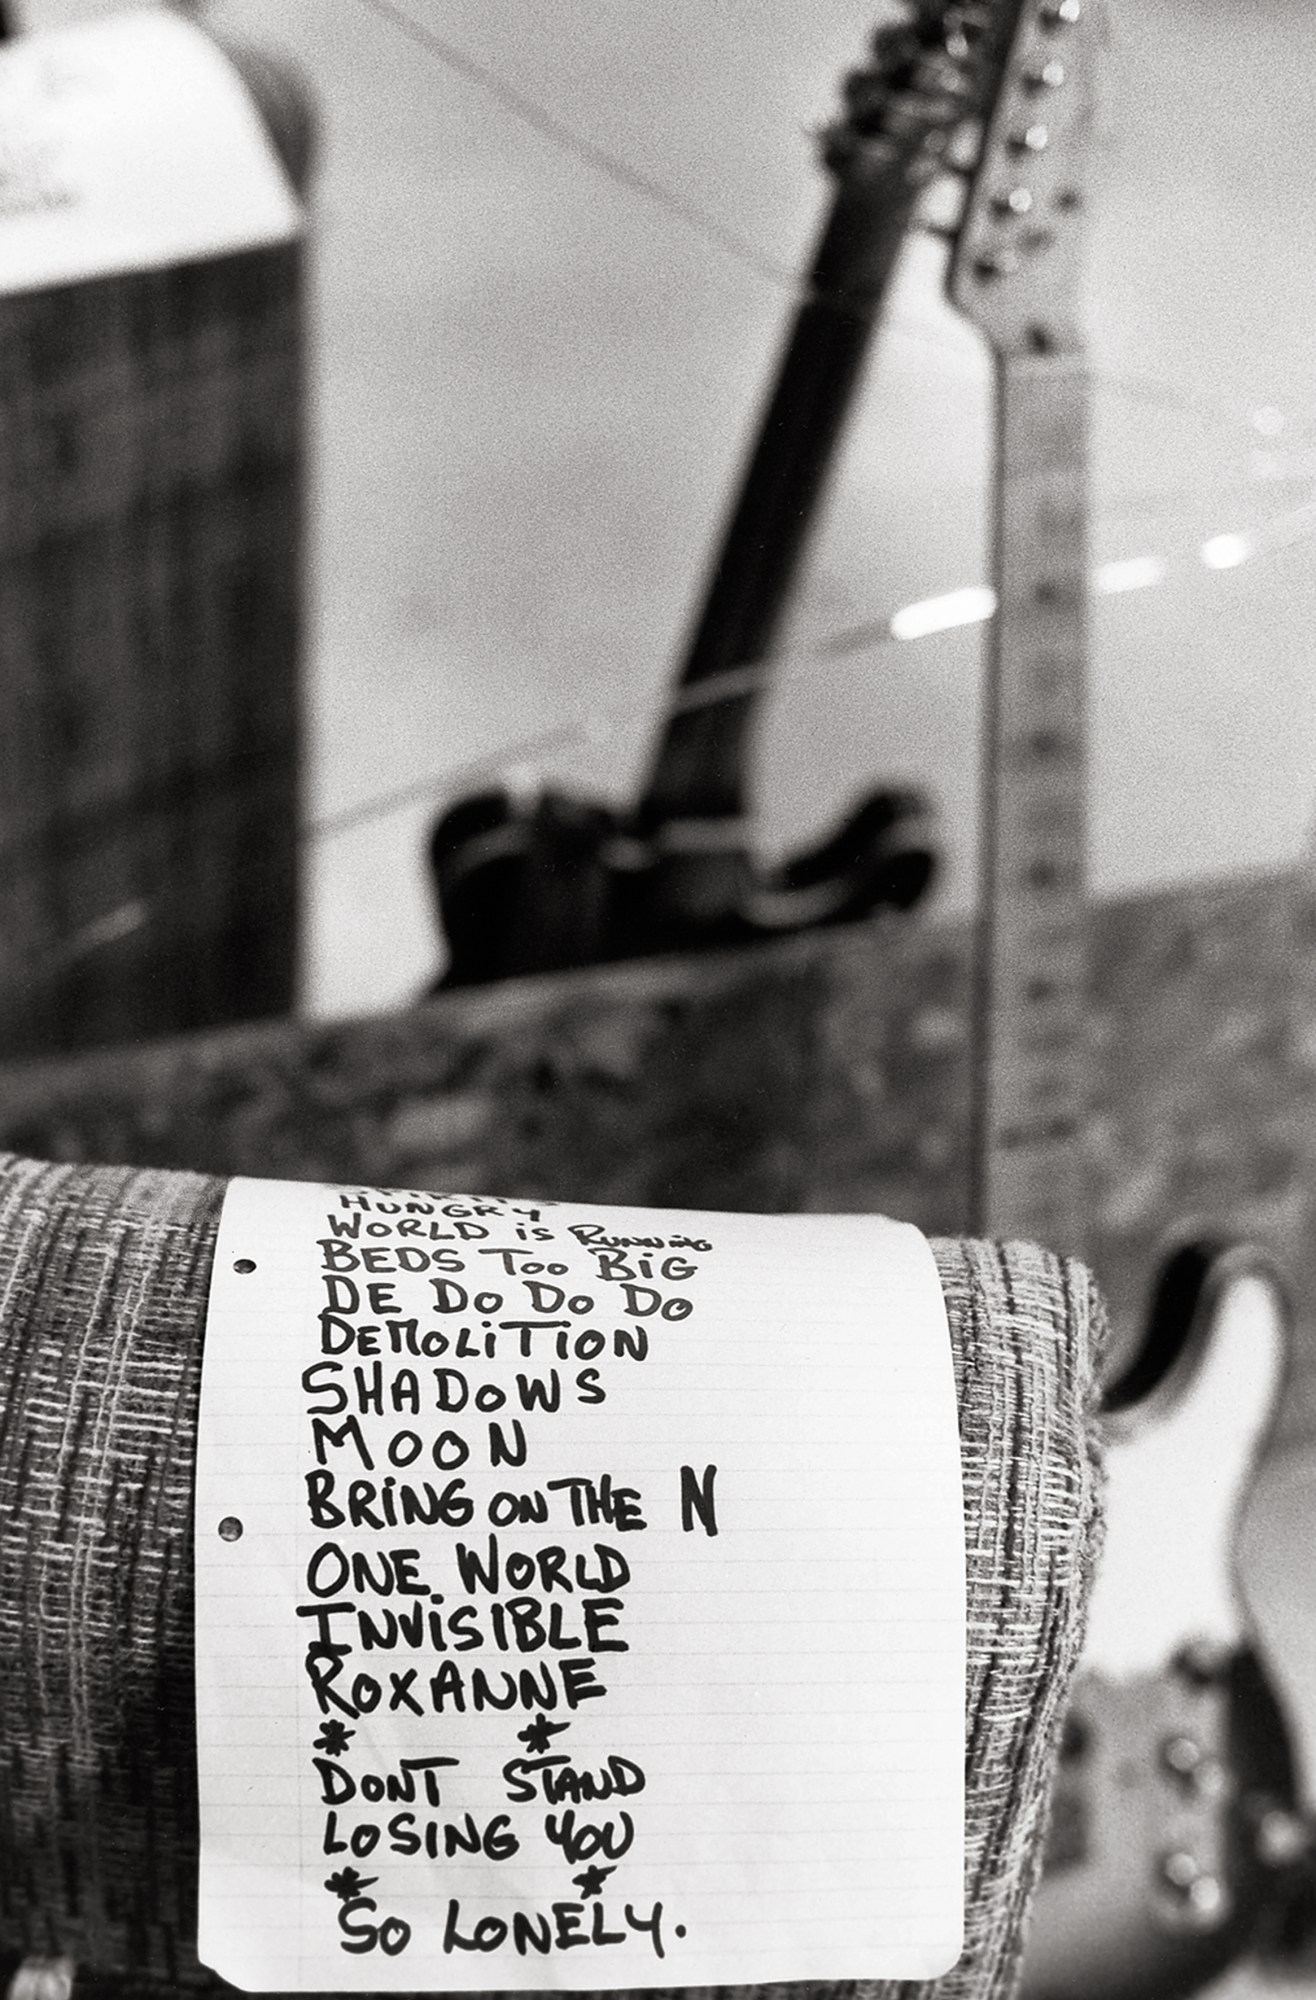 HUNGRY
WORLD is RUNNiNG
BEDS Too BiG
DE Do Do Do
DEMOLiTiON
SHADOWS
MOON
BRiNG ON THE N
ONE WORLD
INViSIBLE
ROXANNE
* *
DONT STAND
LOSING YOU
* *
SO LONELY.